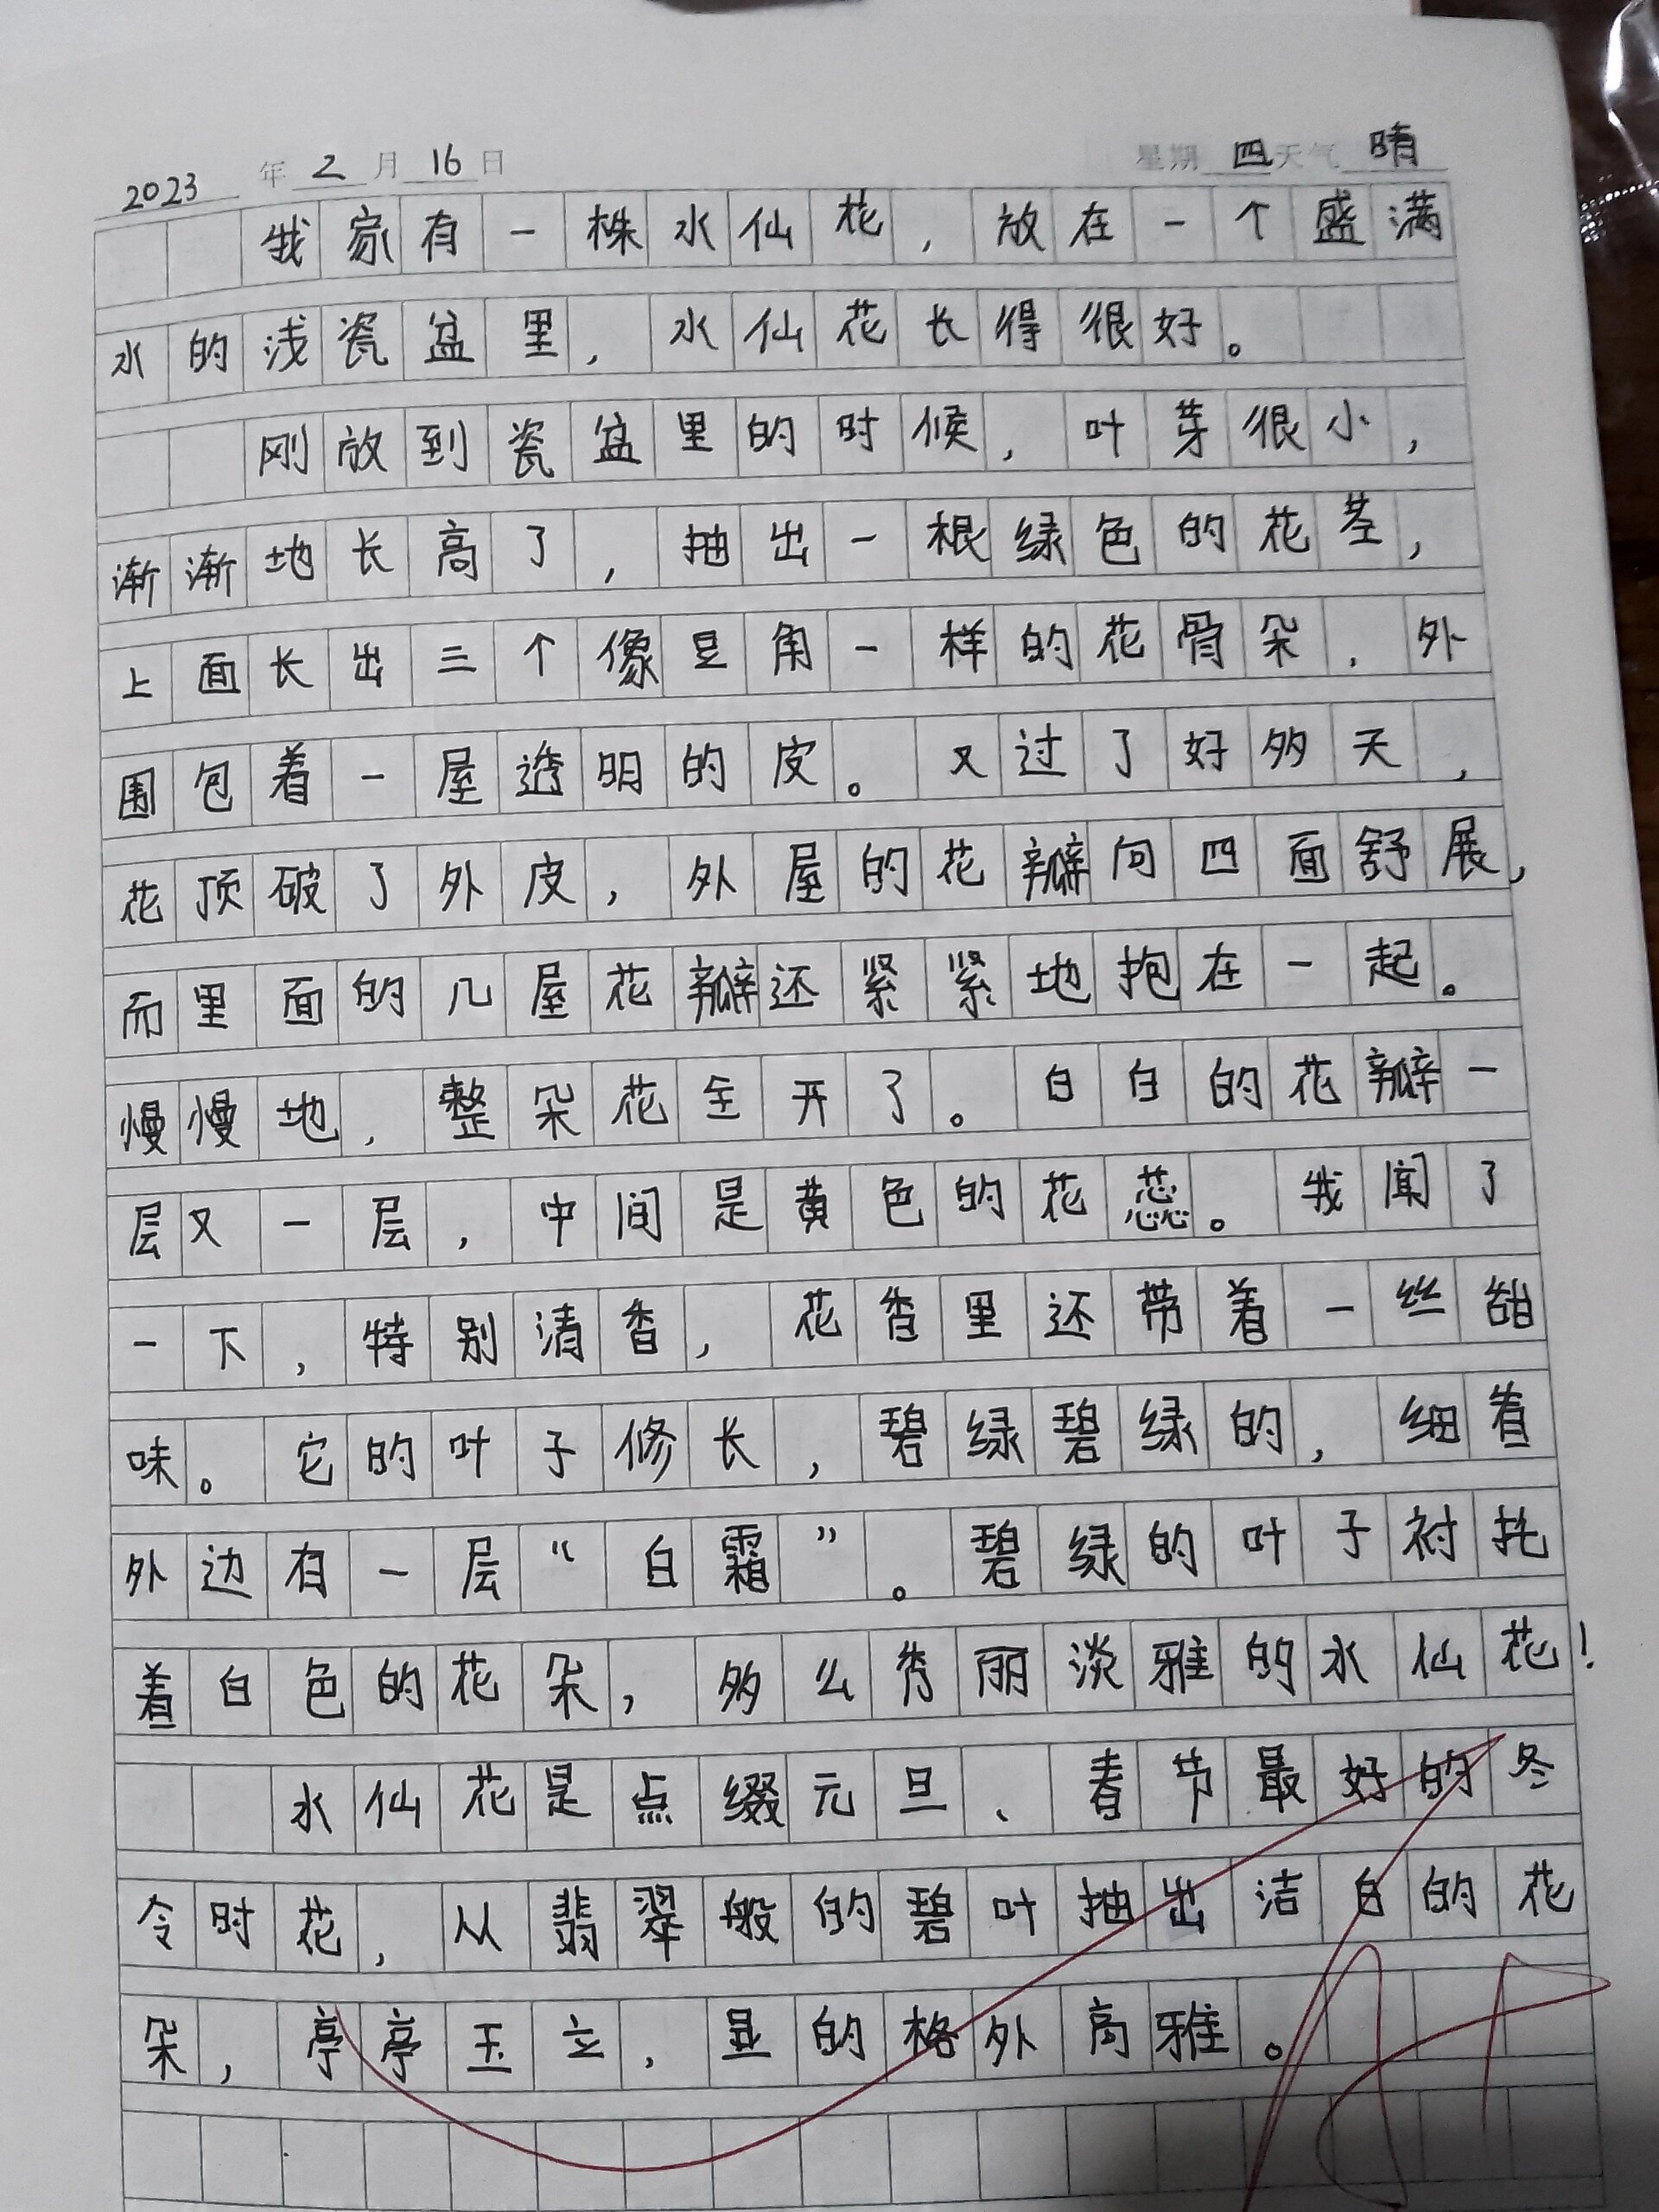 2023年2月16日 星期四天气晴
我家有一株水仙花,放在一个盛满
水的浅瓷盆里,水仙花长得很好。
刚放到瓷盆里的时候,叶芽很小,
渐渐地长高了,抽出一根绿色的花茎,
上面长出三个像豆角一样的花骨朵,外
围包着一屋透明的皮。又过了好多天,
花顶破了外皮,外屋的花瓣向四面舒展,
而里面的几屋花瓣还紧紧地抱在一起。
慢慢地,整朵花全开了。白白的花瓣一
层又一层,中间是黄色的花蕊。我闻了
一下,特别清香,花香里还带着一丝甜
味。它的叶子修长,碧绿碧绿的,细看
外边有一层“白霜”。碧绿的叶子衬托
着白色的花朵,多么秀丽淡雅的水仙花!
水仙花是点缀元旦、春节最好的冬
令时花,从翡翠般的碧叶抽出洁白的花
朵,亭亭玉立,显的格外高雅。